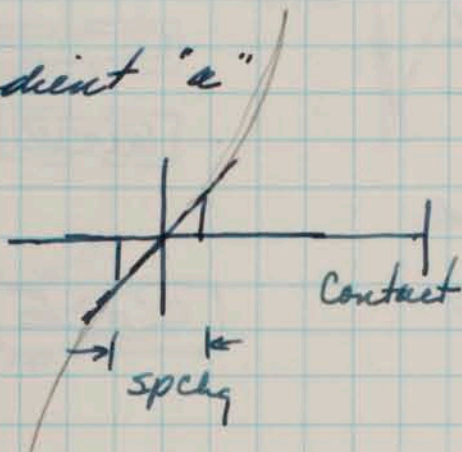 dient "a"
Contact
spchg